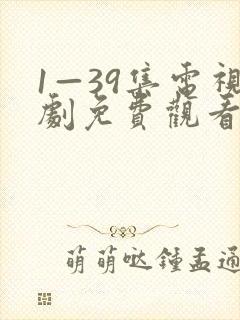 1—39集電視
劇免費觀看
萌萌哒鍾孟通